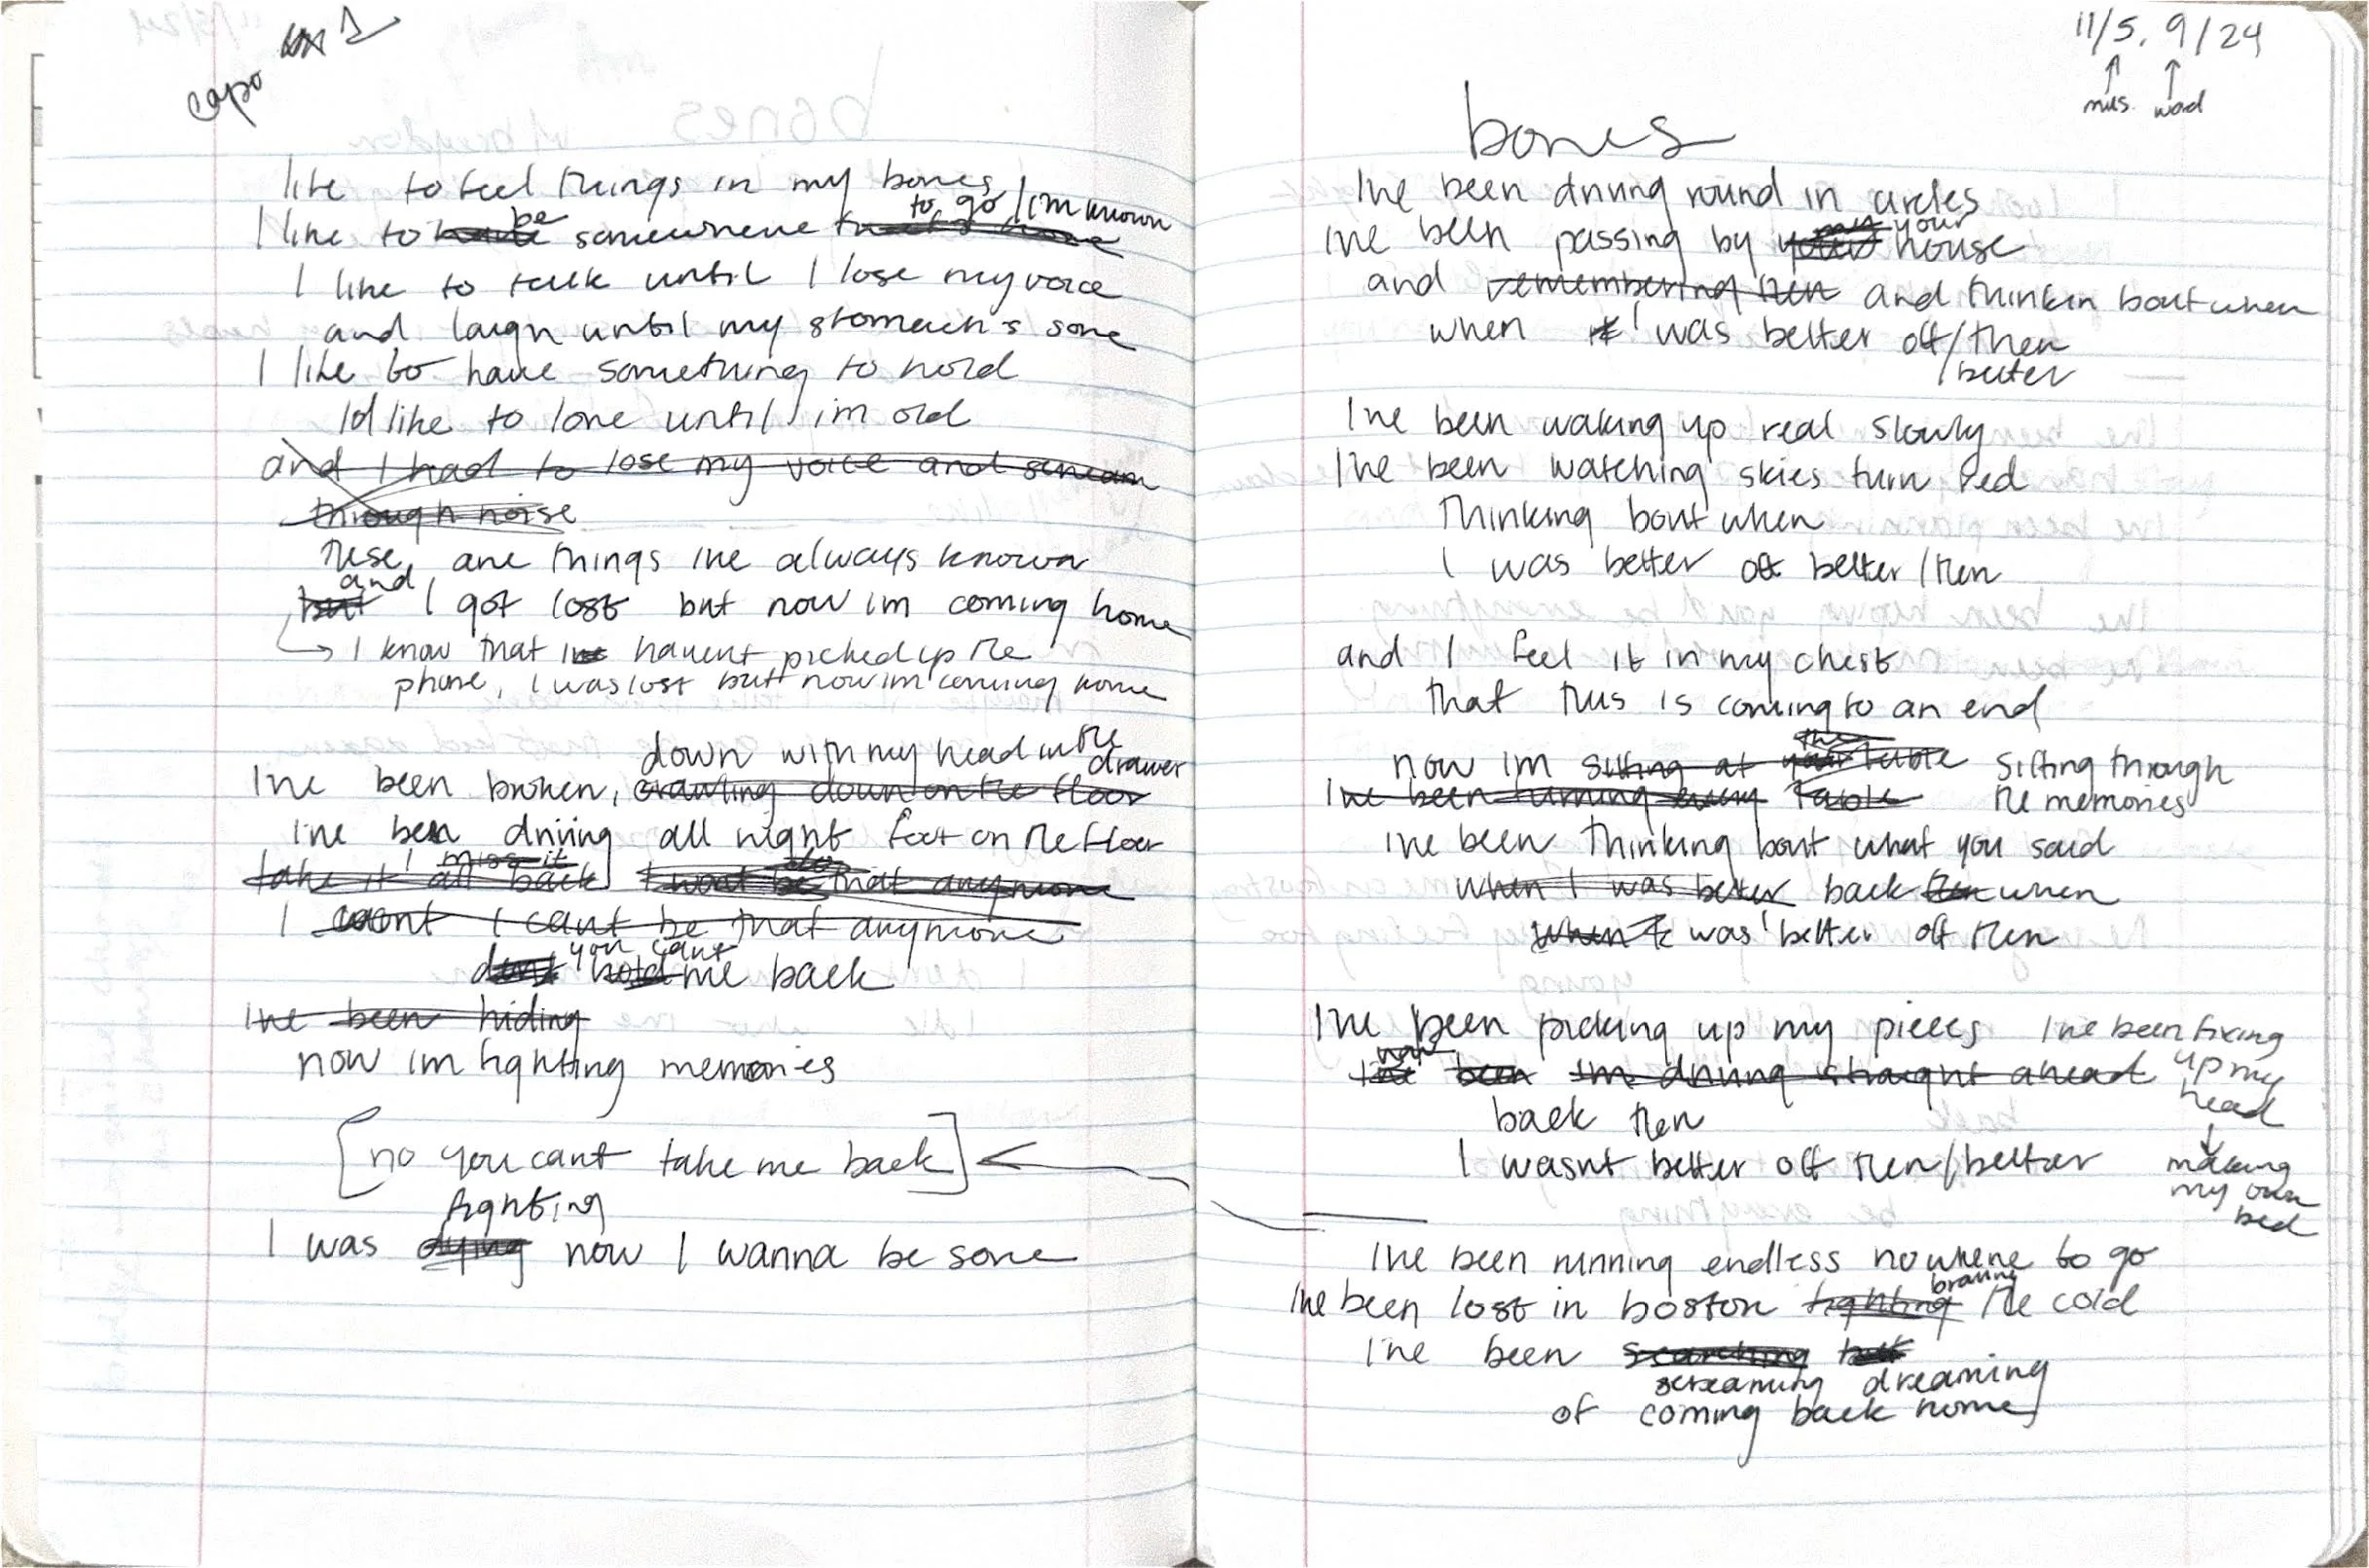 capo 1
like to feel things in my bones
to go / im known
be
I like to have somewhere that's home
I like to talk until I lose my voice
and laugh until my stomach's sore
I like to have something to hold
Id like to love until im old
and I had to lose my voice and scream
through noise
these are things ive always known
and
but I got lost but now im coming home
I know that ive havent picked up the
phone, I was lost but now im coming home
down with my head in the
drawer
Ive been broken, crawling down on the floor
ive been driving all night foot on the floor
I miss it
take it all back I wont be that anymore
I want I cant be that anymore
you cant
dont hold me back
Ive been hiding
now im fighting memories
[no you cant take me back]
fighting
I was dying now I wanna be sore
11/5, 9/24
mus. word
bones
Ive been driving round in circles
my your
ive been passing by your house
and remembering then and thinkin bout when
when I was better off/then
/better
Ive been waking up real slowly
Ive been watching skies turn red
Thinking bout when
I was better off better/then
and I feel it in my chest
that this is coming to an end
the
now im sitting at your table sifting through
Ive been turning every table the memories
ive been thinking bout what you said
when I was better back then when
when I was better off then
Ive been picking up my pieces Ive been fixing
up my
head
now
Ive been Im driving straight ahead
back then
I wasnt better off then/better
making
my own
bed
Ive been running endless nowhere to go
braving
Ive been lost in boston fighting the cold
I've been searching but
screaming dreaming
of coming back home